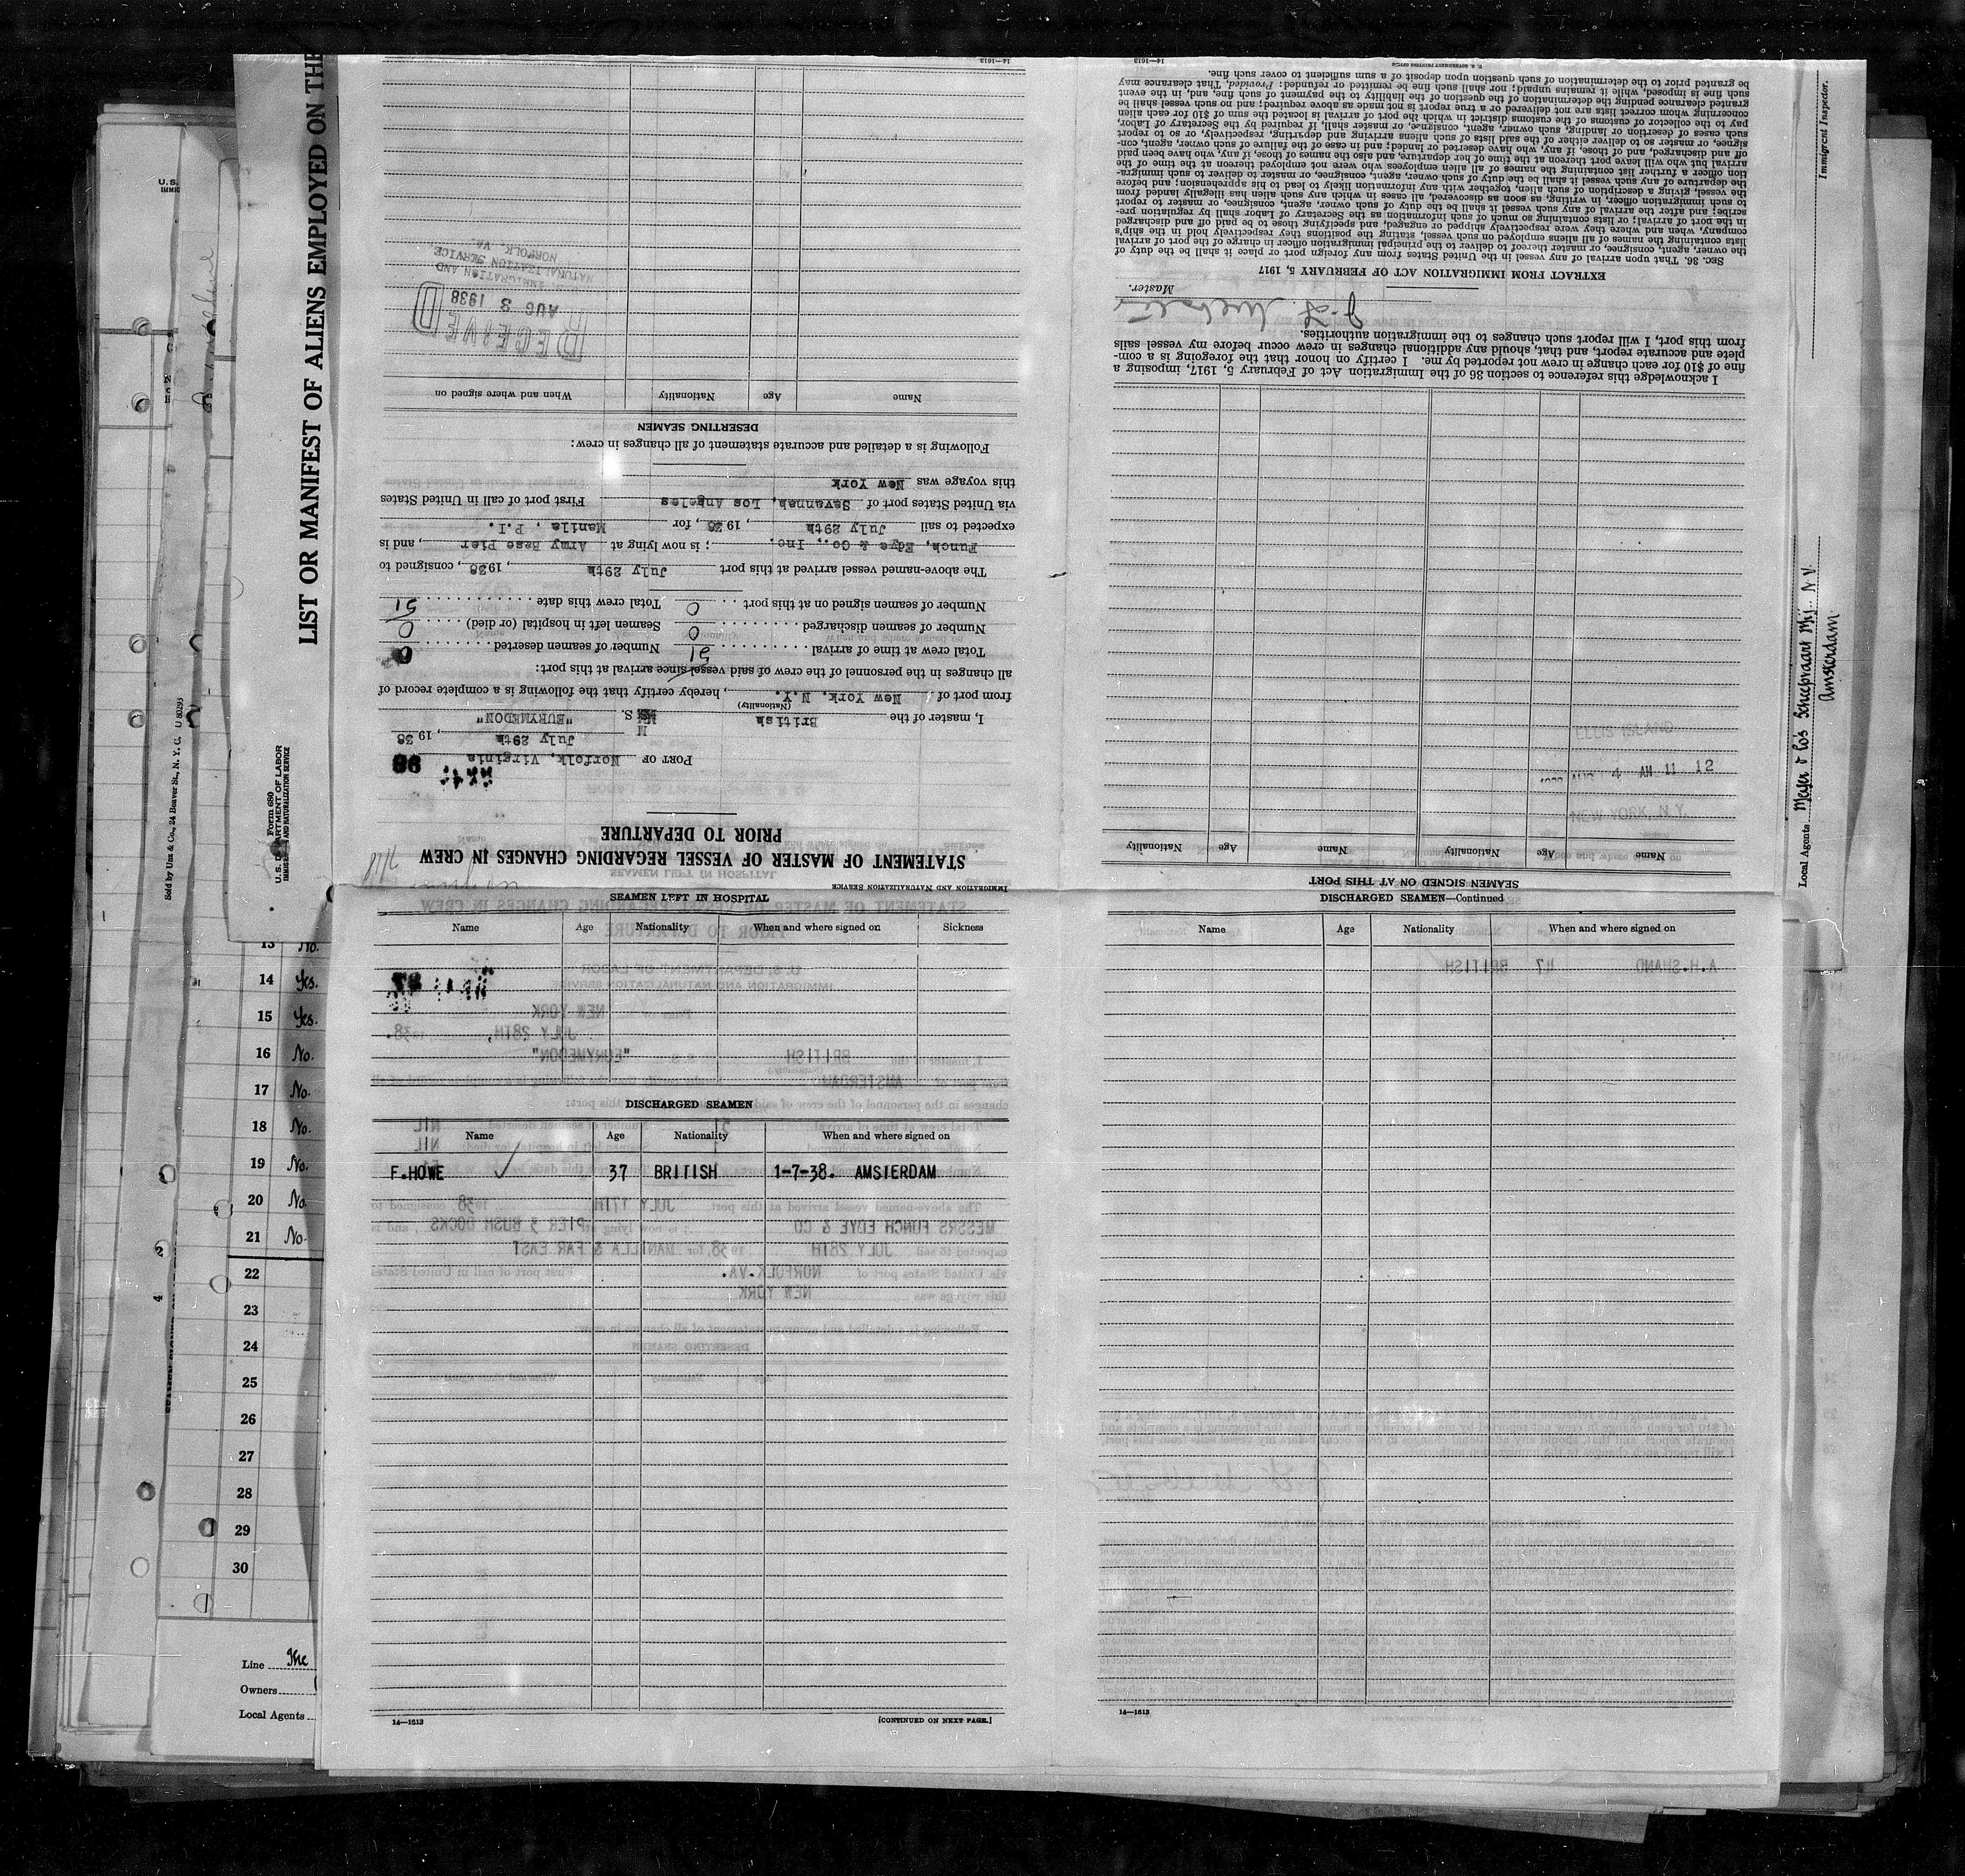 LIST OR MANIFEST OF ALIENS EMPLOYED ON THE
Form 680
U.S. DEPARTMENT OF LABOR
IMMIGRATION AND NATURALIZATION SERVICE
Sold by Unz & Co., 24 Beaver St., N. Y. C. U 80293
IMMIGRATION AND NATURALIZATION SERVICE
STATEMENT OF MASTER OF VESSEL REGARDING CHANGES IN CREW
PRIOR TO DEPARTURE
PORT OF Norfolk, Virginia
July 29th, 1938
I, master of the British M S. "EURYMEDON"
(Nationality)
from port of New York, N.Y., hereby certify that the following is a complete record of
all changes in the personnel of the crew of said vessel since arrival at this port:
Total crew at time of arrival 51 Number of seamen deserted 0
Number of seamen discharged 0 Seamen left in hospital (or died) 0
Number of seamen signed on at this port 0 Total crew this date 51
The above-named vessel arrived at this port July 29th, 1938, consigned to
Funch, Edye & Co., Inc.; is now lying at Army Base Pier, and is
expected to sail July 29th, 1938, for Manila, P.I.
via United States port of Savannah, Los Angeles First port of call in United States
this voyage was New York
Following is a detailed and accurate statement of all changes in crew:
DESERTING SEAMEN
Name Age Nationality When and where signed on
RECEIVED
AUG 3 1938
U.S. IMMIGRATION AND
NATURALIZATION SERVICE
NORFOLK, VA.
14—1613
SEAMEN SIGNED ON AT THIS PORT
Name Age Nationality Name Age Nationality
NEW YORK, N.Y.
AUG 4 AM 11 12
ELLIS ISLAND
I acknowledge this reference to section 36 of the Immigration Act of February 5, 1917, imposing a
fine of $10 for each change in crew not reported by me. I certify on honor that the foregoing is a com-
plete and accurate report, and that, should any additional changes in crew occur before my vessel sails
from this port, I will report such changes to the immigration authorities.
Master.
EXTRACT FROM IMMIGRATION ACT OF FEBRUARY 5, 1917
SEC. 36. That upon arrival of any vessel in the United States from any foreign port or place it shall be the duty of
the owner, agent, consignee, or master thereof to deliver to the principal immigration officer in charge of the port of arrival
lists containing the names of all aliens employed on such vessel, stating the positions they respectively hold in the ship's
company, when and where they were respectively shipped or engaged, and specifying those to be paid off and discharged
in the port of arrival; or lists containing so much of such information as the Secretary of Labor shall by regulation pre-
scribe; and after the arrival of any such vessel it shall be the duty of such owner, agent, consignee, or master to report
to such immigration officer, in writing, as soon as discovered, all cases in which any such alien has illegally landed from
the vessel, giving a description of such alien, together with any information likely to lead to his apprehension; and before
the departure of any such vessel it shall be the duty of such owner, agent, consignee, or master to deliver to such immigra-
tion officer a further list containing the names of all alien employees who were not employed thereon at the time of the
arrival but who will leave port thereon at the time of her departure, and also the names of those, if any, who have been paid
off and discharged, and of those, if any, who have deserted or landed; and in case of the failure of such owner, agent, con-
signee, or master so to deliver either of the said lists of such aliens arriving and departing, respectively, or so to report
such cases of desertion or landing, such owner, agent, consignee, or master shall, if required by the Secretary of Labor,
pay to the collector of customs of the customs district in which the port of arrival is located the sum of $10 for each alien
concerning whom correct lists are not delivered or a true report is not made as above required; and no such vessel shall be
granted clearance pending the determination of the question of the liability to the payment of such fine, and, in the event
such fine is imposed, while it remains unpaid; nor shall such fine be remitted or refunded: Provided, That clearance may
be granted prior to the determination of such question upon deposit of a sum sufficient to cover such fine.
U. S. GOVERNMENT PRINTING OFFICE 14—1613
Immigrant Inspector.
Local Agents Meyer & Co's Scheepvaart Mij. N.V.
Amsterdam.
SEAMEN LEFT IN HOSPITAL
Name Age Nationality When and where signed on Sickness
DISCHARGED SEAMEN
Name Age Nationality When and where signed on
F.HOWE 37 BRITISH 1-7-38. AMSTERDAM
14—1613 [CONTINUED ON NEXT PAGE.]
DISCHARGED SEAMEN—Continued
Name Age Nationality When and where signed on
A.H.SHAND 47 BRITISH
14—1613
13 No.
14 Yes.
15 Yes.
16 No.
17 No.
18 No.
19 No.
20 No
21 No.
22
23
24
25
26
27
28
29
30
Line The
Owners
Local Agents